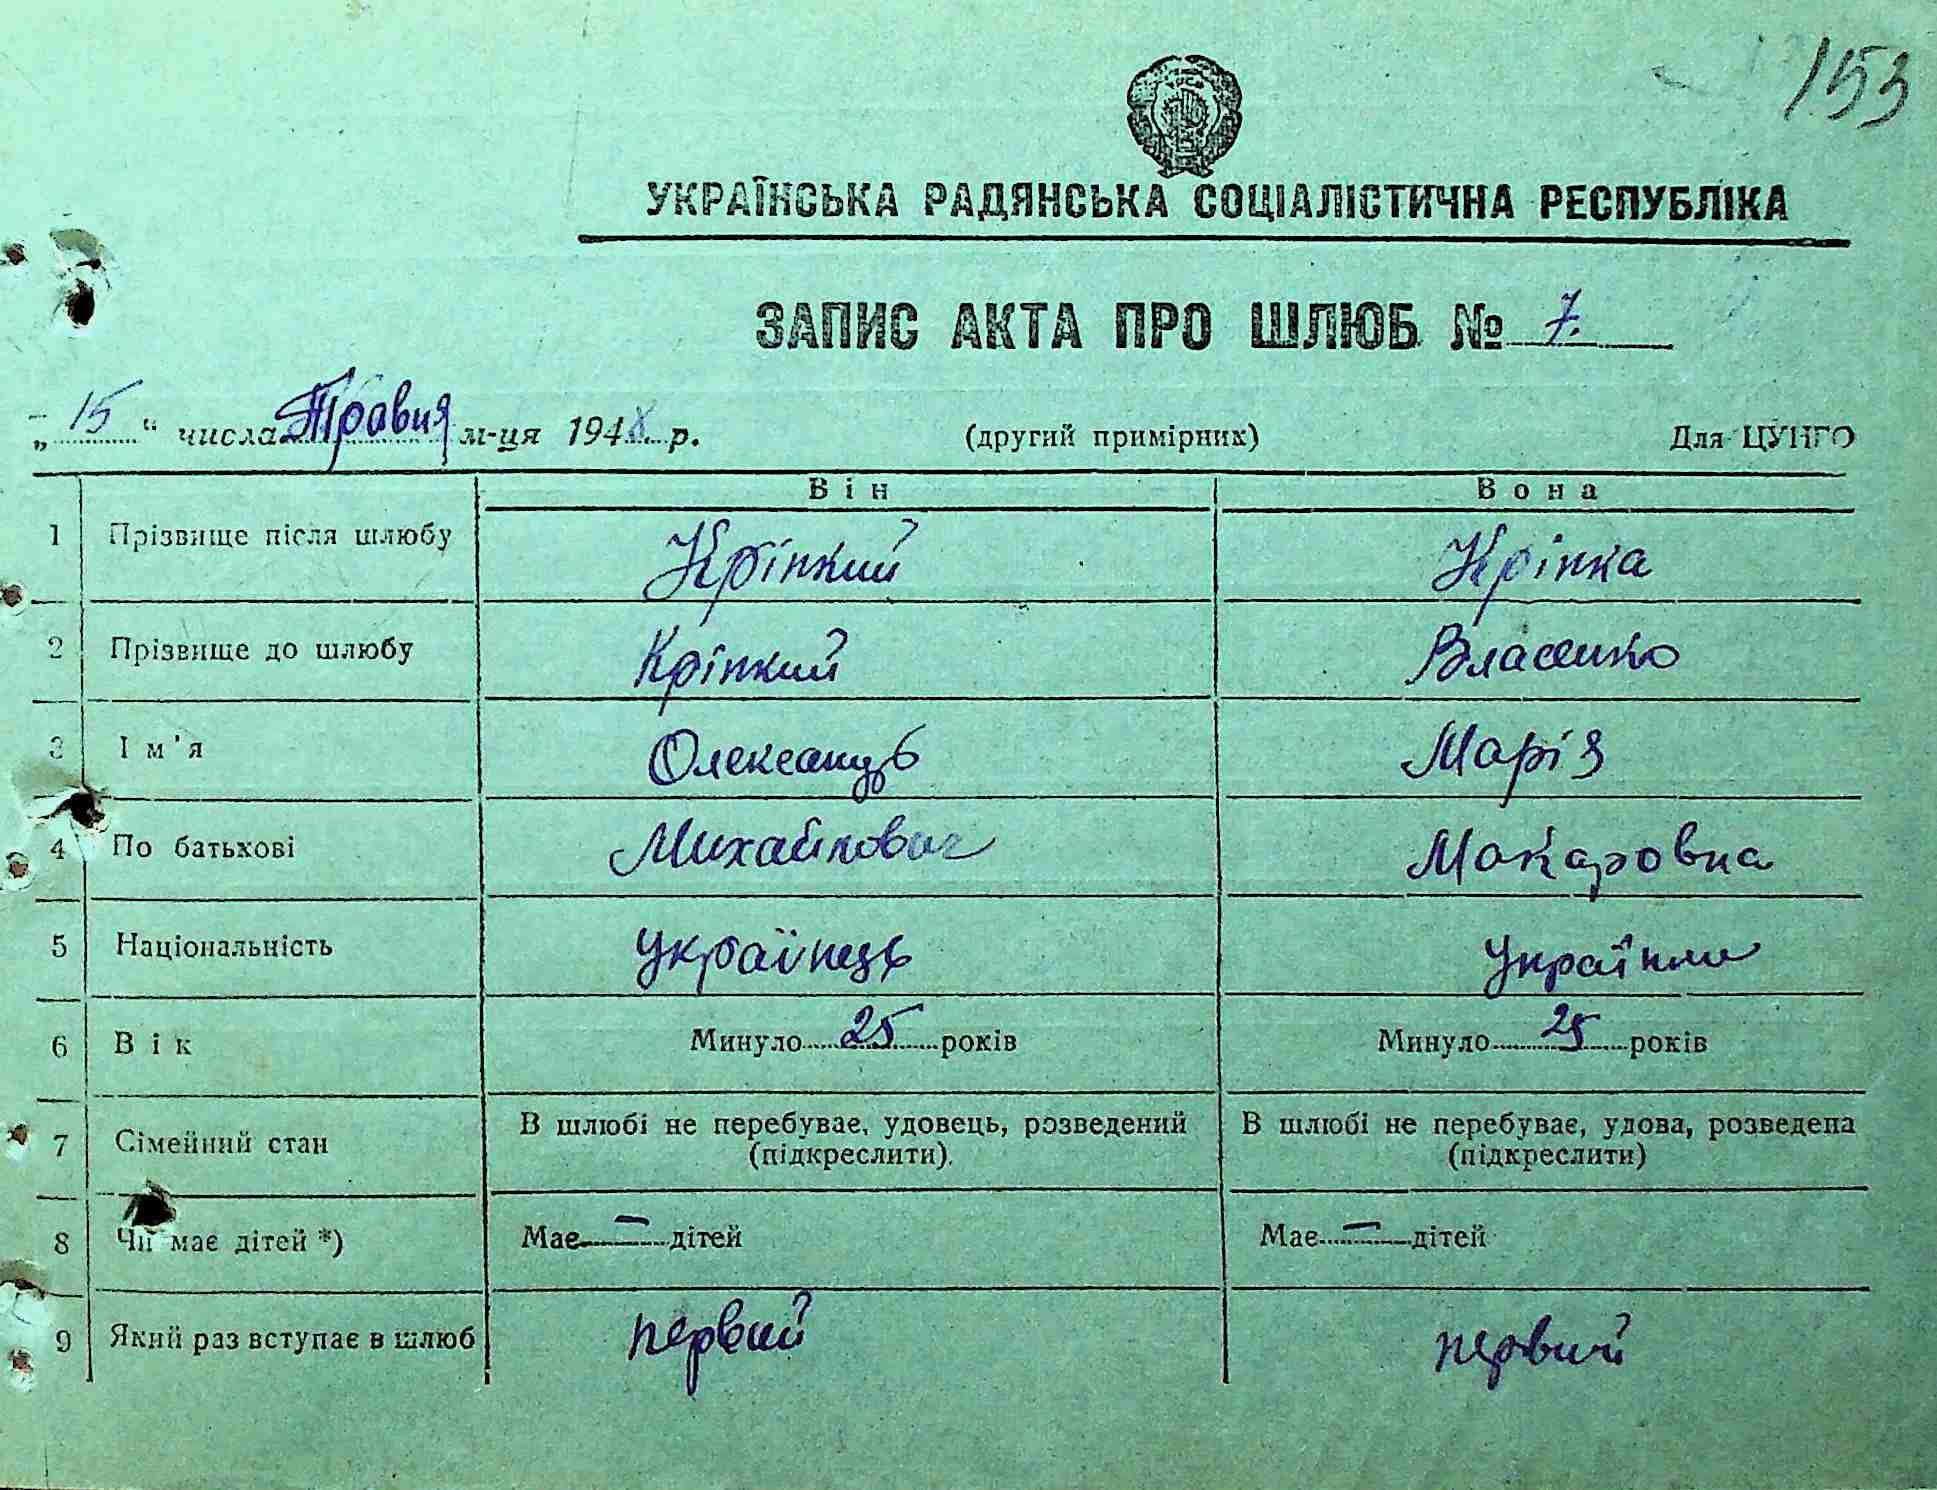 153
УКРАЇНСЬКА РАДЯНСЬКА СОЦІАЛІСТИЧНА РЕСПУБЛІКА
ЗАПИС АКТА ПРО ШЛЮБ № 7.
„15“ числа Травня м-ця 1948 р. (другий примірник) Для ЦУНГО
Він Вона
1 Прізвище після шлюбу Кріпкий Кріпка
2 Прізвище до шлюбу Кріпкий Власенко
3 Ім'я Олександр Марія
4 По батькові Михайлович Макаровна
5 Національність Українець Українка
6 Вік Минуло 25 років Минуло 25 років
7 Сімейний стан В шлюбі не перебуває, удовець, розведений В шлюбі не перебуває, удова, розведена
(підкреслити). (підкреслити)
8 Чи має дітей *) Має — дітей Має — дітей
9 Який раз вступає в шлюб первий первий